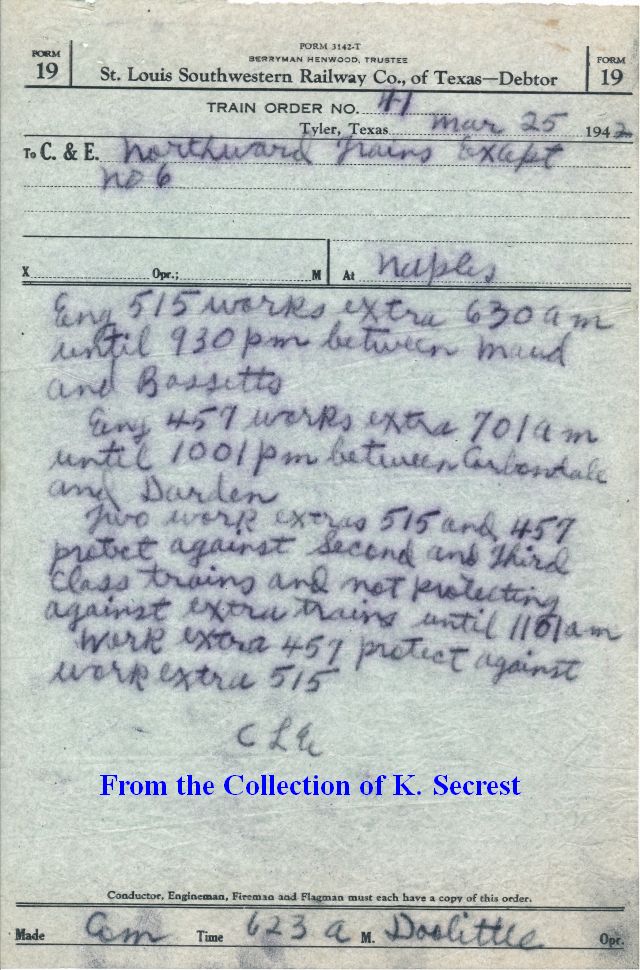 FORM 3142-T
FORM 19
BERRYMAN HENWOOD, TRUSTEE
St. Louis Southwestern Railway Co., of Texas—Debtor
FORM 19
TRAIN ORDER NO. 41
Tyler, Texas Mar 25 1942
To C. & E. Northward Trains Except
No 6
X Opr.; M At Naples
Eng 515 works extra 630 am
until 930 pm between Maud
and Bassetts
Eng 457 works extra 701 am
until 1001 pm between Carbondale
and Darden
Two work extras 515 and 457
protect against Second and Third
Class trains and not protecting
against extra trains until 1101 am
Work extra 457 protect against
work extra 515
From the Collection of K. Secrest
Conductor, Engineman, Fireman and Flagman must each have a copy of this order.
Made Com Time 623 a M. Doolittle Opr.